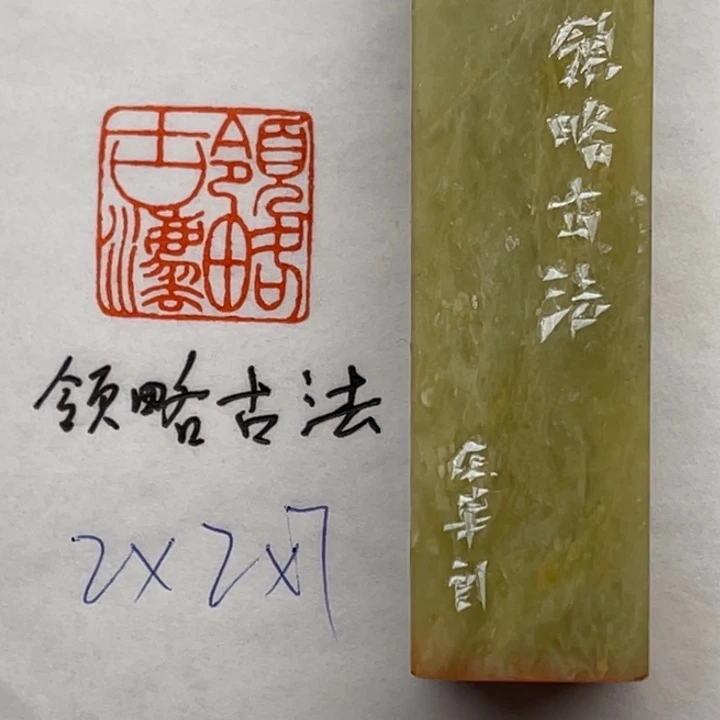 領略古灋
领略古法
2×2×7
領略古法